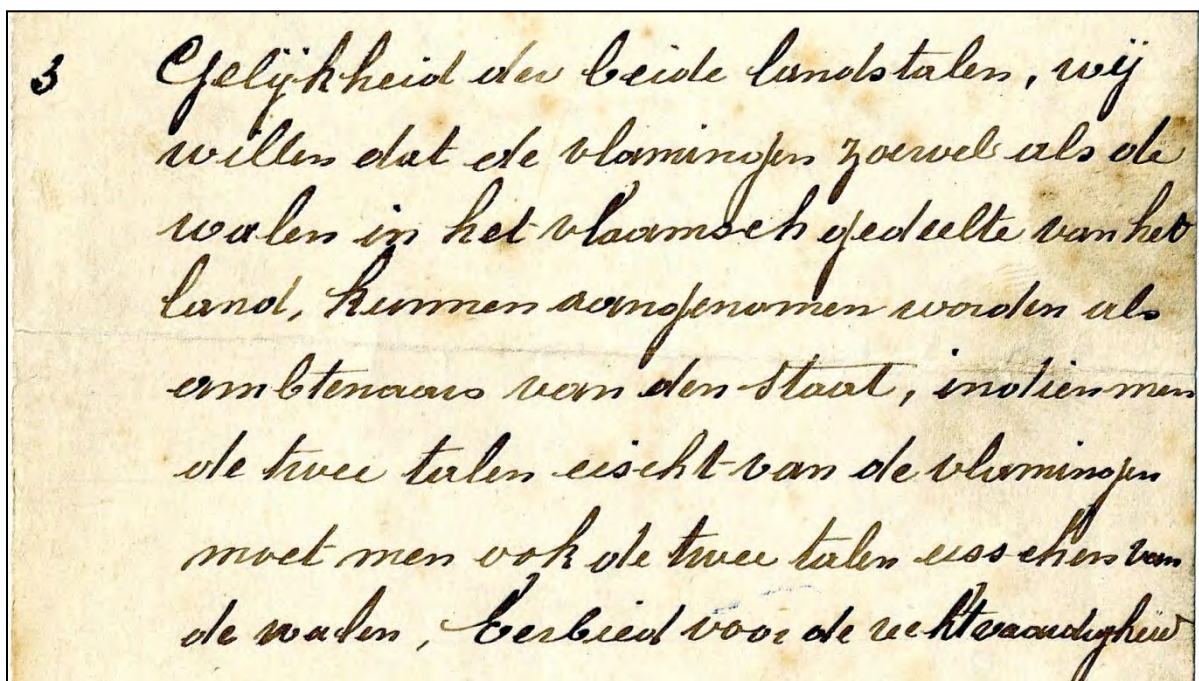 3 Gelijkheid der beide landstalen, wij
willen dat de vlamingen zoowel als de
walen in het vlaamsch gedeelte van het
land, kunnen aangenomen worden als
ambtenaars van den Staat, indien men
de twee talen eischt van de vlamingen
moet men ook de twee talen eisschen van
de walen, Eerbied voor de rechtvaardigheid